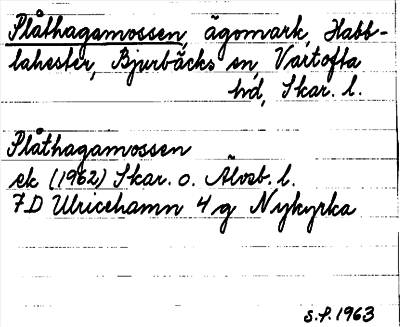 Plåthagamossen, ägomark, Habb-
lahester, Bjurbäcks sn, Vartofta
hd, Skar. l.
Plåthagamossen
ek (1962) Skar. o. Älvsb. l.
7D Ulricehamn 4 g Nykyrka
S.P. 1963